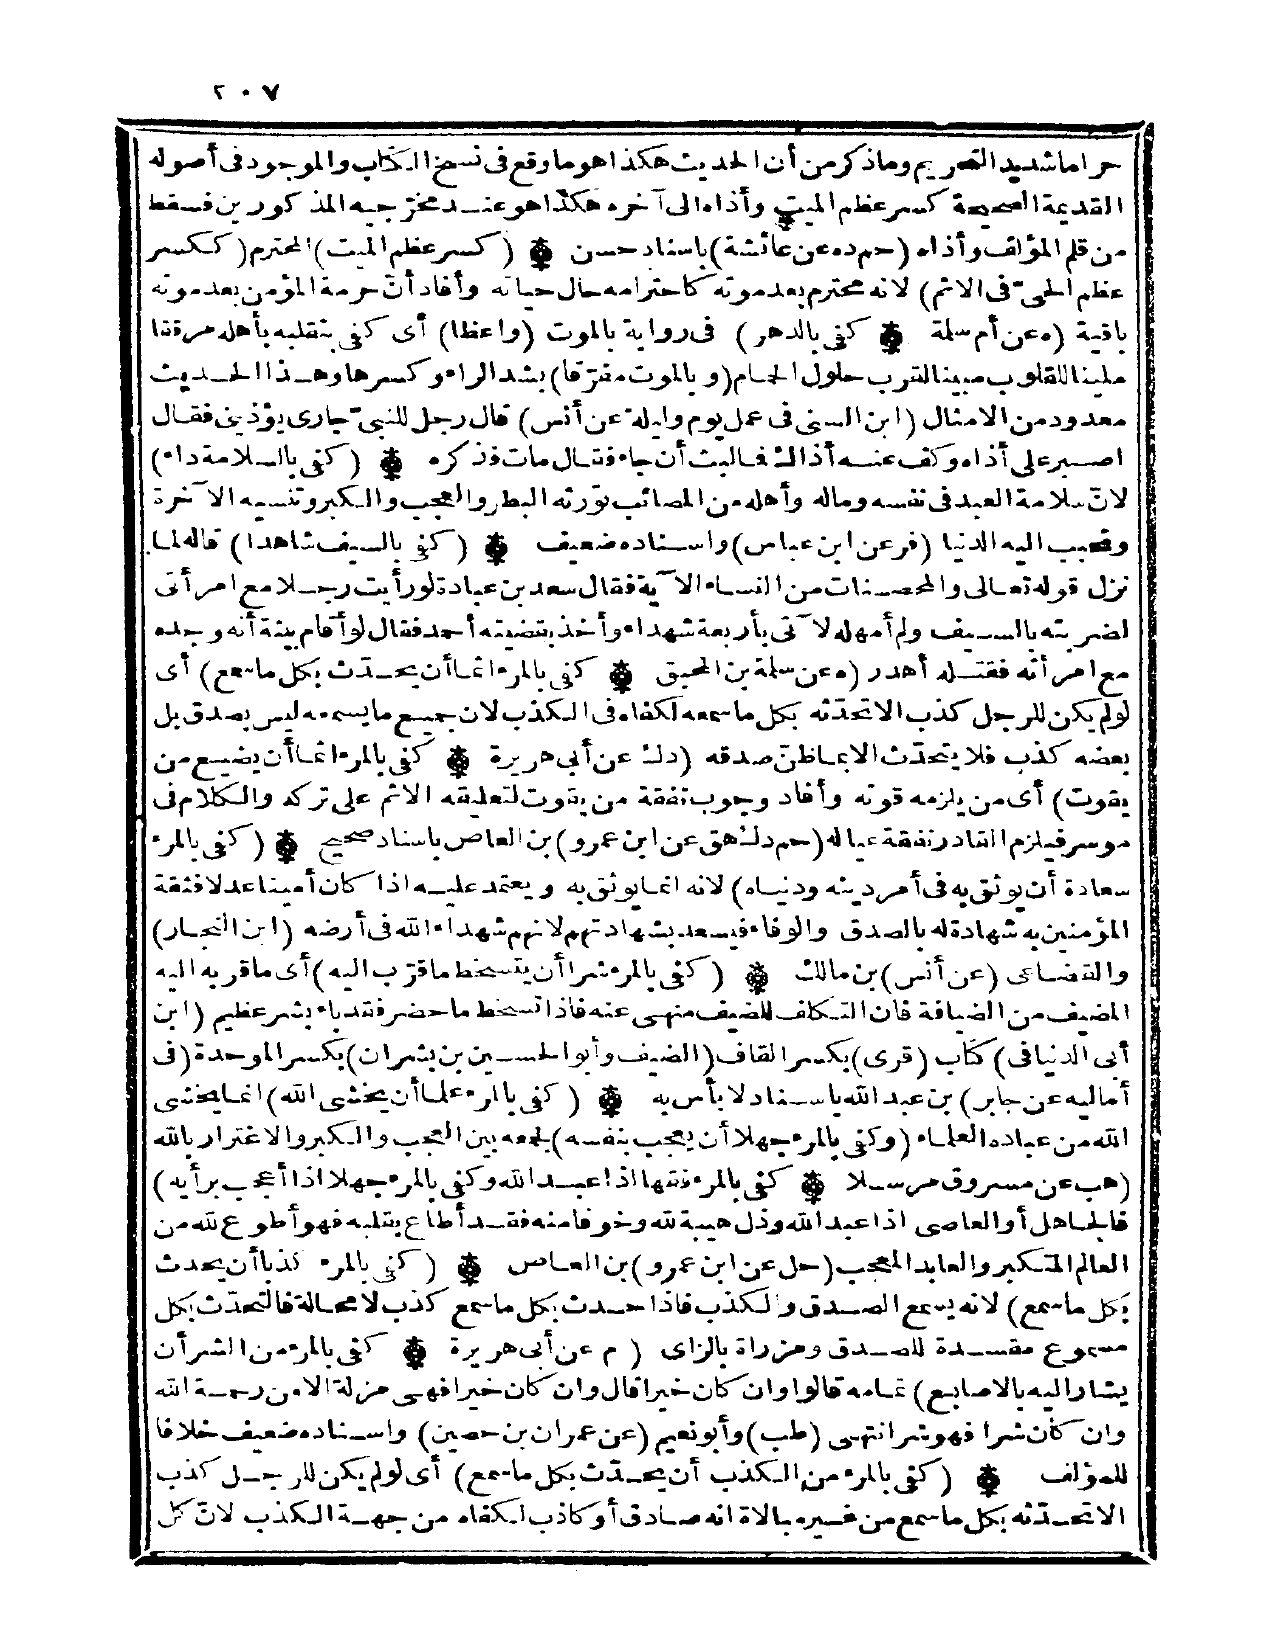 ٢٠٧
حراما شديد التحريم وما ذكر من أن الحديث هكذا هو ما وقع في نسخ الكتاب والموجود في أصوله
القديمة الصحيحة كسر عظم الميت وأذاه الى آخره هكذا هو عند مخرجيه المذكورين فسقط
من قلم المؤلف وأذاه (حم د ه عن عائشة) باسناد حسن ۞ (كسر عظم الميت) المحترم (ككسر
عظم الحي في الاثم) لانه محترم بعد موته كاحترامه حال حياته وأفاد أنّ حرمة المؤمن بعد موته
باقية (ه عن أم سلمة ۞ كفى بالدهر) في رواية بالموت (واعظا) أى كفى بتقلبه بأهله مرققا
ملينا للقلوب مبينا لقرب حلول الحمام (و بالموت مفرّقا) بشد الراء وكسرها وهذا الحديث
معدود من الامثال (ابن السنى في عمل يوم وليلة عن أنس) قال رجل للنبيّ جارى يؤذينى فقال
اصبر على أذاه وكف عنه أذاك فما لبث أن جاء فقال مات فذكره ۞ (كفى بالسلامة داء)
لانّ سلامة العبد في نفسه وماله وأهله من المصائب تورثه البطر والعجب والكبر وتنسيه الآخرة
وتحبب اليه الدنيا (فر عن ابن عباس) واسناده ضعيف ۞ (كفى بالسيف شاهدا) قاله لما
نزل قوله تعالى والمحصنات من النساء الآية فقال سعد بن عبادة لو رأيت رجلا مع امرأتى
لضربته بالسيف ولم أمهله لآتى بأربعة شهداء وأخذ بقضيته أحمد فقال لو أقام بينة أنه وجده
مع امرأته فقتله أهدر (ه عن سلمة بن المحبق ۞ كفى بالمرء اثما أن يحدّث بكل ما سمع) أى
لو لم يكن للرجل كذب الا تحدّثه بكل ما سمعه لكفاه في الكذب لان جميع ما يسمعه ليس بصدق بل
بعضه كذب فلا يتحدّث الا بما ظنّ صدقه (د ك عن أبى هريرة ۞ كفى بالمرء اثما أن يضيع من
يقوت) أى من يلزمه قوته وأفاد وجوب نفقة من يقوت لتعليقه الاثم على تركه والكلام في
موسر فيلزم القادر نفقة عياله (حم د ك هق عن ابن عمرو) بن العاص باسناد صحيح ۞ (كفى بالمرء
سعادة أن يوثق به في أمر دينه ودنياه) لانه انما يوثق به ويعتمد عليه اذا كان أمينا عدلا فثقة
المؤمنين به شهادة له بالصدق والوفاء فيسعد بشهادتهم لانهم شهداء الله في أرضه (ابن النجار)
والقضاعى (عن أنس) بن مالك ۞ (كفى بالمرء شرا أن يتسخط ما قرّب اليه) أى ما قربه اليه
المضيف من الضيافة فان التكلف للضيف منهى عنه فاذا تسخط ما حضر فقد باء بشر عظيم (ابن
أبى الدنيا في) كتاب (قرى) بكسر القاف (الضيف وأبو الحسين بن بشران) بكسر الموحدة (في
أماليه عن جابر) بن عبد الله باسناد لا بأس به ۞ (كفى بالمرء علما أن يخشى الله) انما يخشى
الله من عباده العلماء (وكفى بالمرء جهلا أن يعجب بنفسه) لجمعه بين العجب والكبر والاغترار بالله
(هب عن مسروق مرسلا ۞ كفى بالمرء فقها اذا عبد الله وكفى بالمرء جهلا اذا أعجب برأيه)
فالجاهل أو العاصى اذا عبد الله وذل هيبة لله وخوفا منه فقد أطاع بقلبه فهو أطوع لله من
العالم المتكبر والعابد المعجب (حل عن ابن عمرو) بن العاص ۞ (كفى بالمرء كذبا أن يحدث
بكل ما سمع) لانه يسمع الصدق والكذب فاذا حدث بكل ما سمع كذب لا محالة فالتحدّث بكل
مسموع مفسدة للصدق ومزراة بالراى (م عن أبى هريرة ۞ كفى بالمرء من الشر أن
يشار اليه بالاصابع) تمامه قالوا وان كان خيرا قال وان كان خيرا فهى مزلة الا من رحمة الله
وان كان شرا فهو شر انتهى (طب) وأبو نعيم (عن عمران بن حصين) واسناده ضعيف خلافا
للمؤلف ۞ (كفى بالمرء من الكذب أن يحدّث بكل ما سمع) أى لو لم يكن للرجل كذب
الا تحدّثه بكل ما سمع من غير مبالاة انه صادق أو كاذب لكفاه من جهة الكذب لانّ كل